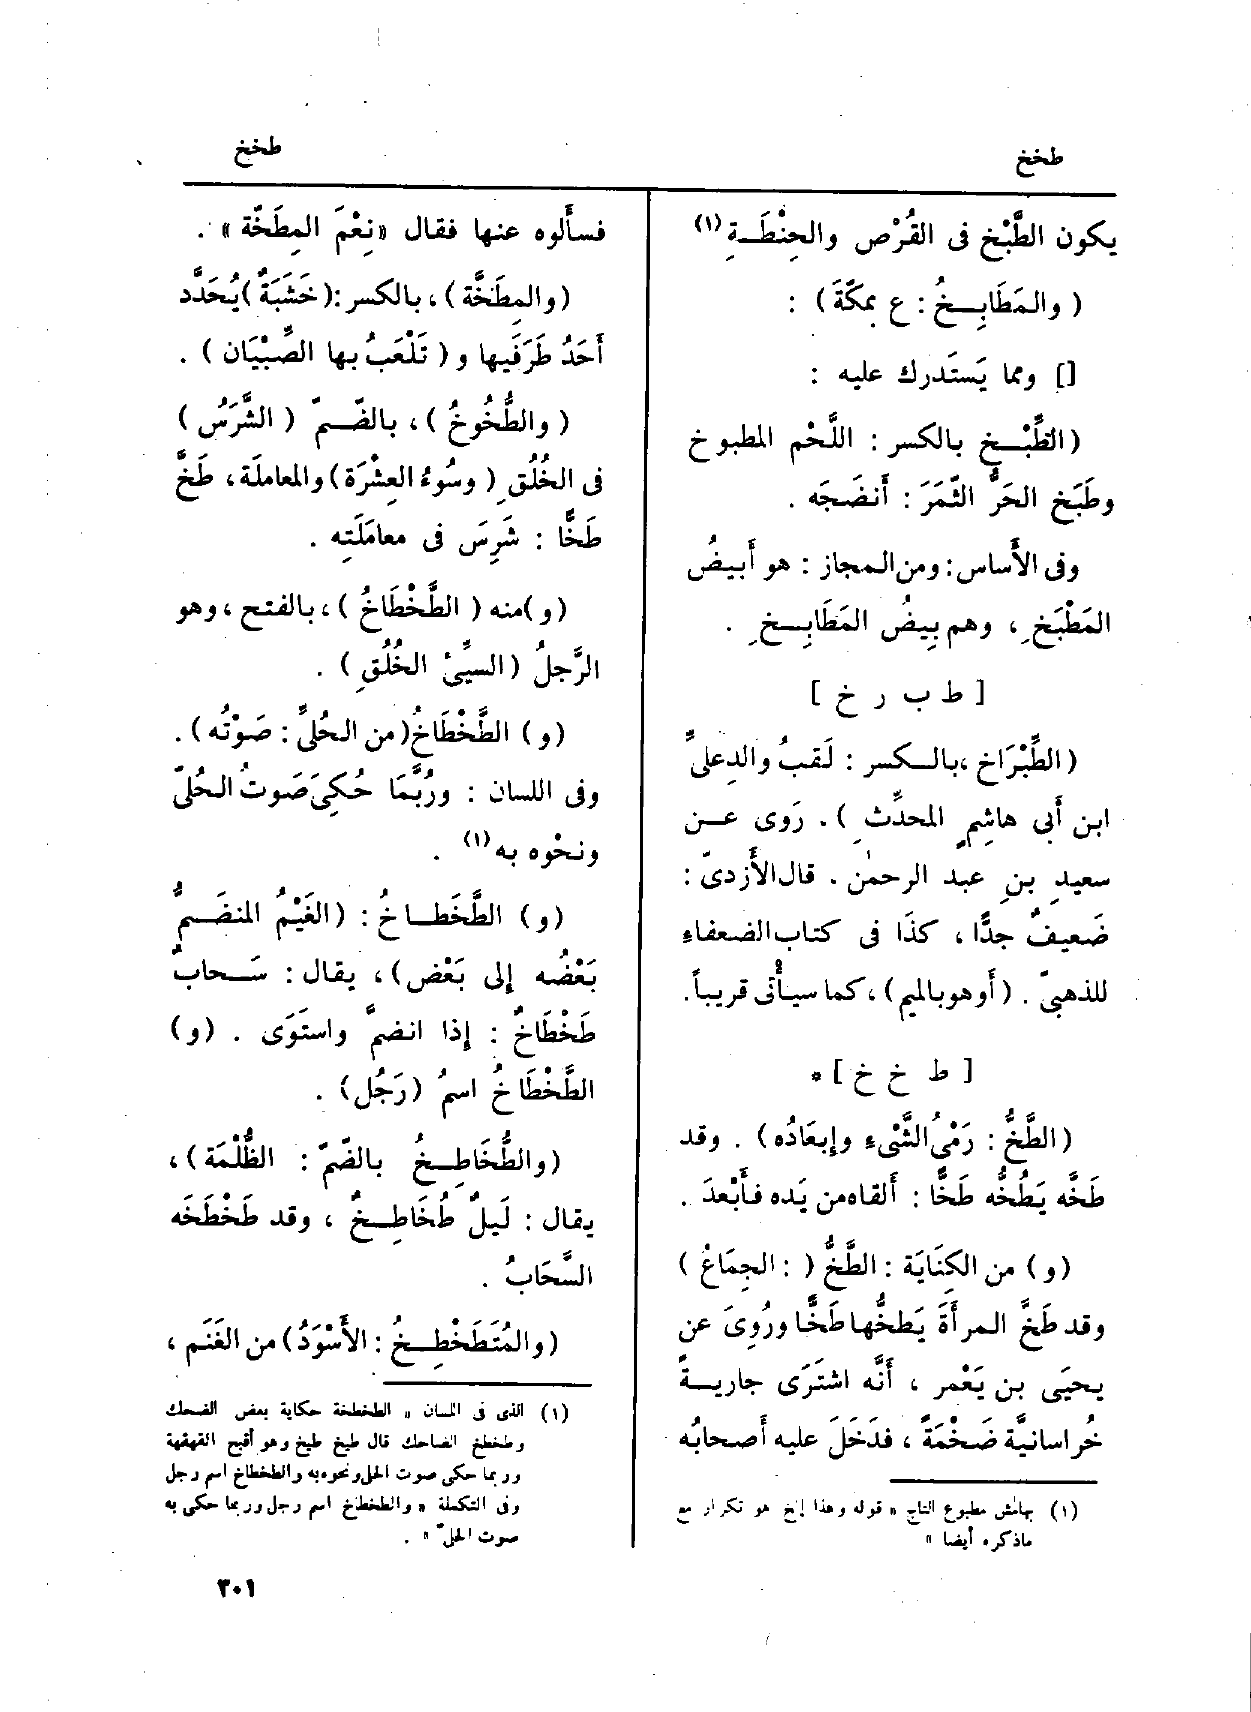 طخخ
يكون الطَّبْخ فى القُرْص والحِنْطَـةِ (١)
( والمَطَابِـخُ : ع بمكَّةَ ) :
[] ومما يَستَدرك عليه :
(الطِّبْـخ بالكسر : اللَّحْم المطبوخ
وطَبَخ الحَرُّ الثَّمَرَ : أَنضَجَه .
وفى الأَساس: ومن المجاز : هو أَبيضُ
المَطْبَخِ ، وهم بِيضُ المَطَابِـخِ .
[ ط ب ر خ ]
(الطِّبْرَاخ ،بالـكسر : لَقبُ والدِ علىِّ
ابن أَبى هاشِمٍ المحدِّثِ ). رَوى عـن
سعيدِ بنِ عبد الرحمٰن . قال الأَزدىّ :
ضَعيفٌ جدًّا ، كذَا فى كتاب الضعفاءِ
للذهبىّ . (أَو هو بالميم) ، كما سيأْتى قريباً.
[ ط خ خ ] *
(الطَّخُّ : رَمْىُ الشَّىْءِ وإِبعَادُه) . وقد
طَخَّه يَطُخُّه طَخًّا : أَلقاه من يَده فأَبْعدَ .
(و) من الكِنَايَة : الطَّخُّ ( : الجِمَاعُ )
وقد طَخَّ المرأَةَ يَطخُّها طَخًّا ورُوِىَ عن
يحيَى بن يَعْمر ، أَنَّه اشتَرَى جاريـةً
خُراسانيَّة ضَخْمَةً ، فدَخَلَ عليه أَصحابُه
(١) بهامش مطبوع التاج « قوله وهذا إلخ هو تكرار مع
ماذكره أيضا »
طخخ
فسأَلوه عنها فقال «نِعْمَ المِطَخّة » .
(والمِطَخَّة) ، بالكسر :( خَشَبَةٌ )يُحَدَّد
أَحَدُ طَرَفَيها و ( تَلْعَبُ بها الصِّبْيَان ) .
( والطُّخُوخُ ) ، بالضّمّ ( الشَّرَسُ )
فى الخُلُقِ ( وسُوءُ العِشْرَة ) والمعاملَة ، طَخَّ
طَخًّا : شَرِسَ فى معامَلَتِه .
(و)منه ( الطَّخْطَاخُ ) ، بالفتح ، وهو
الرَّجلُ (السيِّئُ الخُلُقِ ) .
(و) الطَّخْطَاخُ(من الحُلىِّ : صَوْتُه) .
وفى اللسان : ورُبَّمَا حُكِىَ صَوتُ الحُلىّ
ونحْوه به (١) .
(و) الطَّخَطـاخُ : (الغَيْمُ المنضَـمُّ
بَعْضُه إِلى بَعْض) ، يقال : سَـحابٌ
طَخْطَاخٌ : إِذا انضمَّ واستَوَى . (و)
الطَّخْطَاخُ اسمُ (رَجُل) .
(والطُّخَاطِـخُ بالضّمّ : الظُّلْمَة) ،
يقال : لَيلٌ طُخَاطِـخٌ ، وقد طَخْطَخَه
السَّحَابُ .
(والمُتَطَخْطِـخُ : الأَسْوَدُ) من الغَنَم ،
(١) الذى فى اللسان « الطخطخة حكاية بعض الضحك
وطخطخ الضاحك قال طيخ طيخ وهو أقبح القهقهة
وربما حكى صوت الحلى ونحوه به والطخطاخ اسم رجل
وفى التكملة « والطخطاخ اسم رجل وربما حكى به
صوت الحلىّ » .
٣٠١